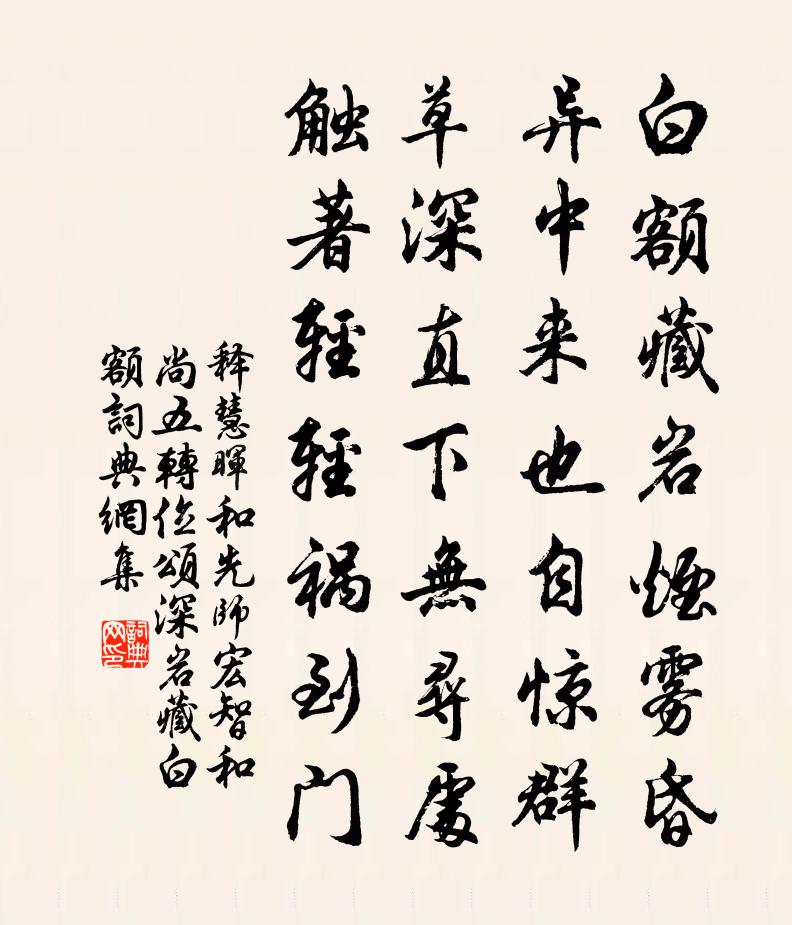 白额藏岩烟雾昏
异中来也自惊群
草深直下無尋處
触著輕輕祸到门
释慧暉和先师宏智和
尚五轉位頌深岩藏白
额詞典網集
詞典
网印